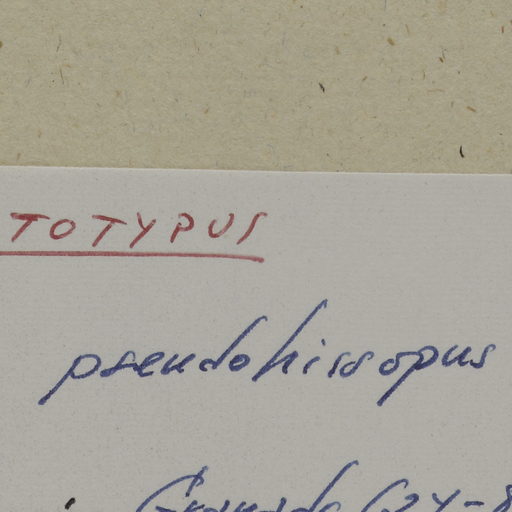 TOTYPUS
pseudohissopus
Granada